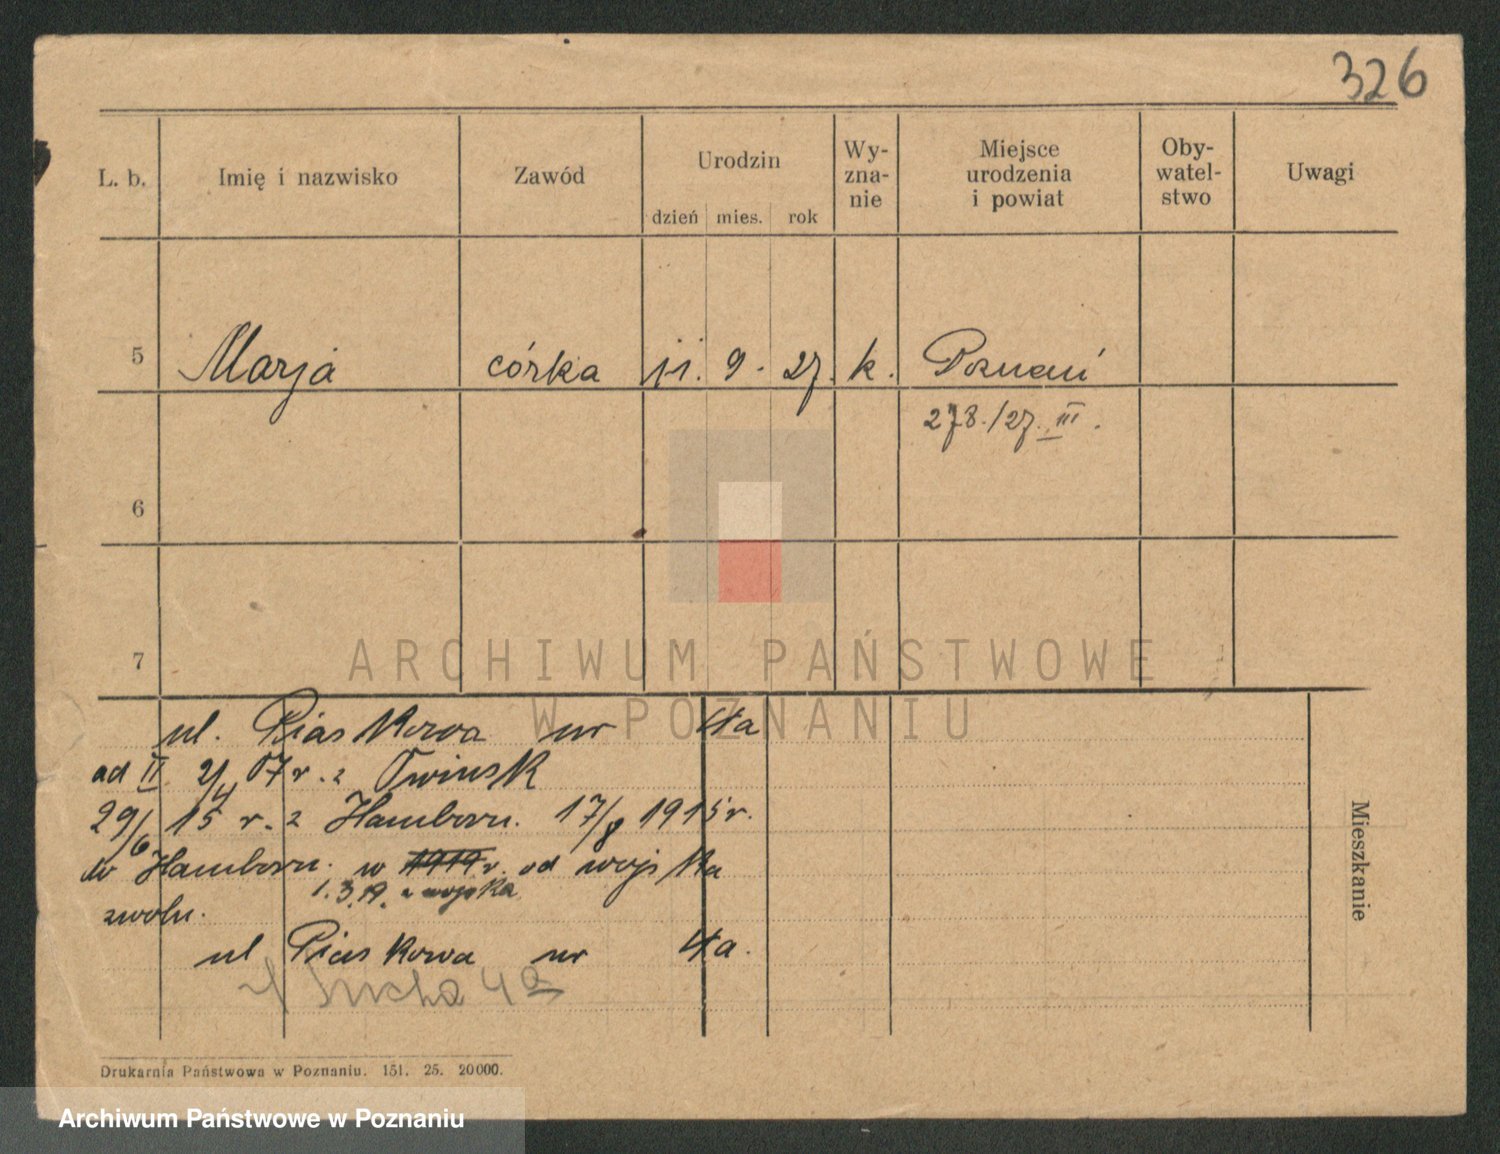 326
L. b. Imię i nazwisko Zawód Urodzin dzień mies. rok Wy-zna-nie Miejsce urodzenia i powiat Oby-watel-stwo Uwagi
5 Marja córka 11. 9. 27. k. Poznań
278./27. III.
6
7
ARCHIWUM PAŃSTWOWE
W POZNANIU
ul. Piaskowa nr 4a
ad II 2/4 07 r. z Owinsk
29/6 15 r. z Hamborn. 17/8 1915 r.
w Hamborn. w 1919 r. od wojska
1.3.19. z wojska
zwoln.
ul Piaskowa nr 4a.
Sucha 4a
Mieszkanie
Drukarnia Państwowa w Poznaniu. 151. 25. 20000.
Archiwum Państwowe w Poznaniu